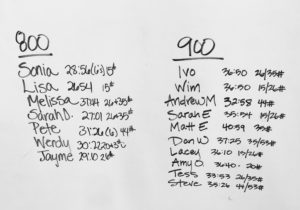 800
Sonia 28:56
Lisa 26:54 15#
Melissa 37:04 26+35#
Sarah D. 27:01 26+35#
Pete 31:26 (6) 44#
Wendy
Jayme 29:10 26#
900
Ivo 36:50 26/35#
Wim 36:50 15/26#
Andrew M 32:58 44#
Sarah E 35:54 15/26#
Matt E 40:59 35#
Dan W 37:25 35/53#
Lacey 36:10 15/26#
Amy O. 36:40. 20#
Tess 33:53 26/35#
Steve 35:26 44/53#